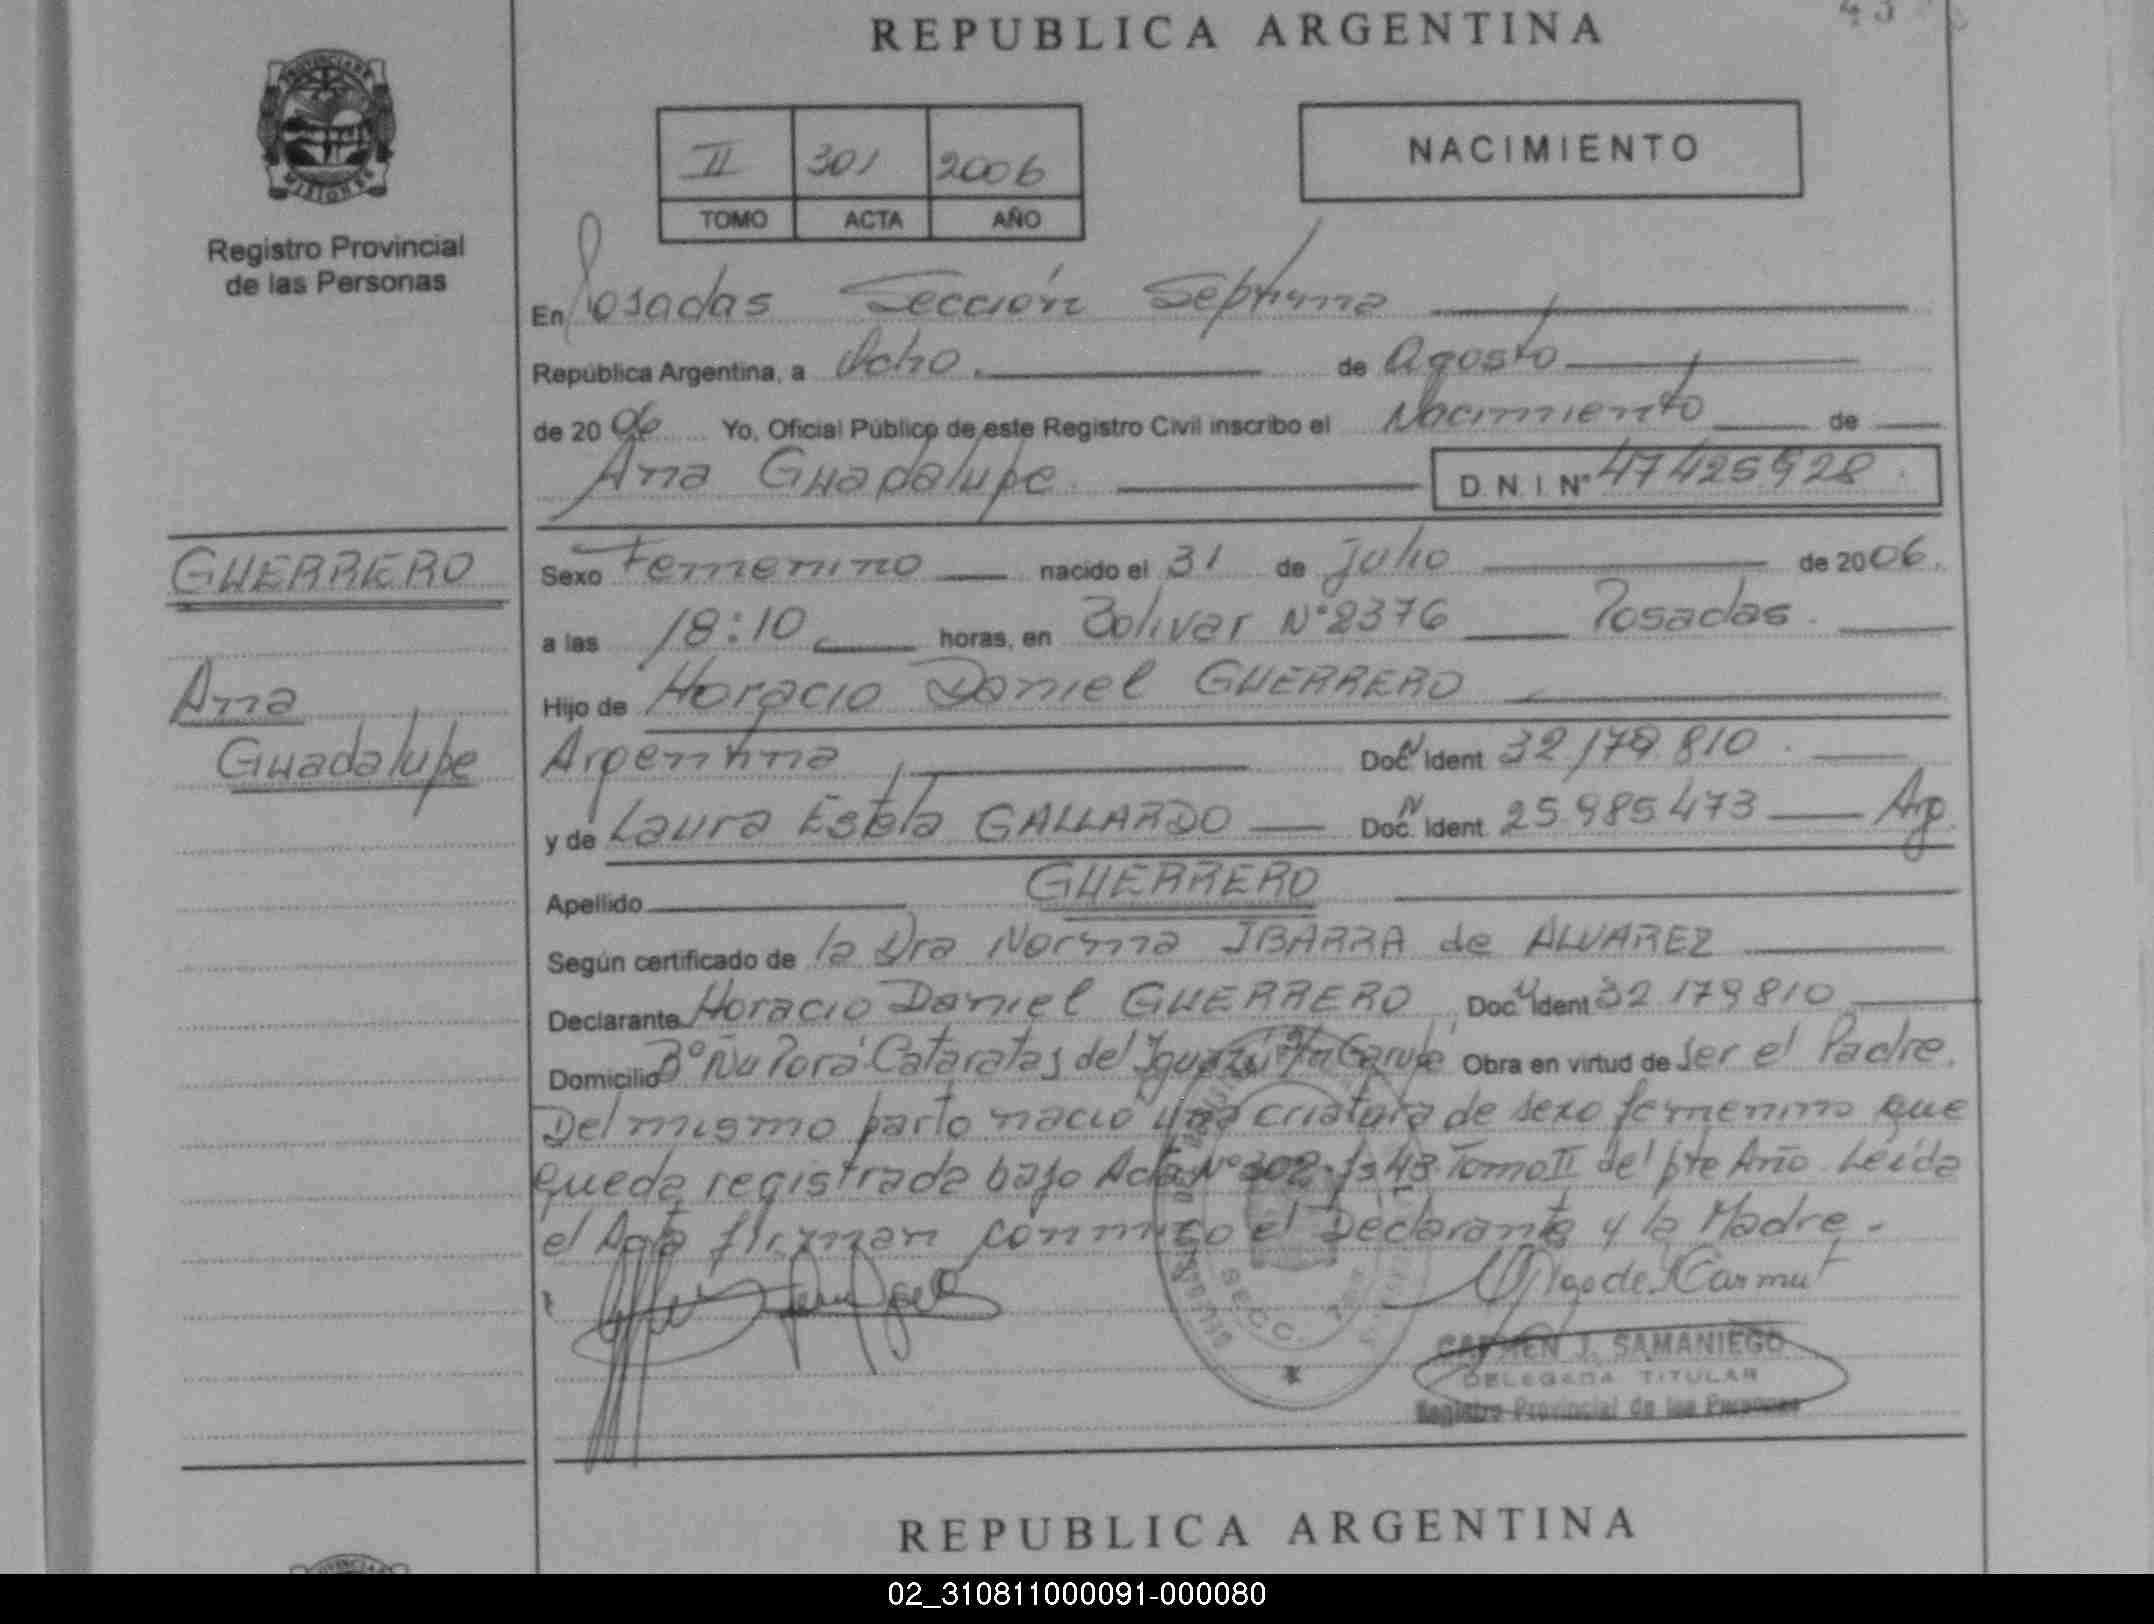 REPUBLICA ARGENTINA
43
PROVINCIA DE
MISIONES
Registro Provincial
de las Personas
II 301 2006
TOMO ACTA AÑO
NACIMIENTO
En Posadas Sección Septima
República Argentina, a Ocho. de Agosto
de 20 06 Yo, Oficial Público de este Registro Civil inscribo el Nacimiento de
Ana Guadalupe D.N.I. Nº 47425928
GUERRERO
Ana
Guadalupe
Sexo Femenino nacido el 31 de Julio de 2006.
a las 18:10 horas, en Bolivar Nº 2376 Posadas.
Hijo de Horacio Daniel GUERRERO
Argentina Doc. N Ident 32.179.810
y de Laura Estela GALLARDO Doc. N Ident 25985473 Arg
Apellido GUERRERO
Según certificado de la Dra Norma IBARRA de ALVAREZ
Declarante Horacio Daniel GUERRERO Doc. N Ident 32179810
Domicilio Bº Ñu Porá Cataratas del Iguazú Garupá Obra en virtud de Ser el Padre.
Del mismo parto nació una criatura de sexo femenino que
queda registrada bajo Acta Nº 302 fs 43 Tomo II del pte Año. Leida
el Acta firman conmigo el Declarante y la Madre.
SECC. 7
CARMEN J. SAMANIEGO
DELEGADA TITULAR
Registro Provincial de las Personas
REPUBLICA ARGENTINA
02_310811000091-000080